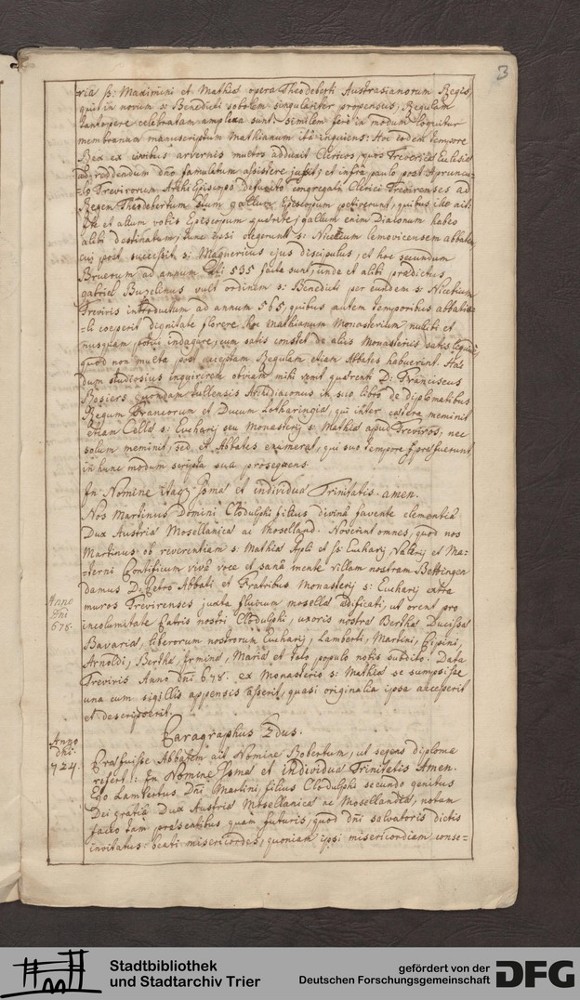 3
ria ss: Maximini et Mathiae opera Theodeberti Austrasianorum Regis,
qui in novum s: Benedicti sobolem singulariter propensus, Regulam
tantopere celebratam amplexa sunt. similem fere in modum loquitur
membranum manuscriptum Mathianum ita inquiens: Hoc eodem tempore
Rex ex civibus arvernis multos adduxit Clericos, quos Trevericae Ecclesiae
ad reddendum dno famulatum assistere jussit, et infra paulo post
Trevirorum Archi Episcopo defuncto congregati Clerici Trevirenses ad
Regem Theodebertum Gallum Episcopum petiverunt, quibus ille ait:
Ite et alium vobis Episcopum quaerite, gallum enim Diaconum habeo
alibi destinatum, tunc ipsi elegerunt s: Nicetium lemovicensem abbatem
cui post successit s: Magnericus ejus discipulus, et hoc secundum
Bruerum ad annum Xti 535 facta sunt, unde et alibi praedictus
gabriel Buzelinus vult ordinem s: Benedicti per eundem s: Nicetium
Treviris introductum ad annum 565, quibus autem temporibus abbatia-
li coeperit dignitate florere hoc Mathianum Monasterium nullibi et
nusquam potui indagare, cum satis constet de aliis Monasteriis satis
quod non multo post acceptam Regulam etiam Abbates habuerint. Haec
dum studiosius inquirerem obviam mihi venit quaerenti D: Franciscus
Rosiers quondam tullensis Archidiaconus in suo libro de diplomatibus
Regum Francorum et Ducum Lotharingiae, qui inter caetera meminit
etiam Cellae s: Eucharij seu Monasterij s: Mathiae apud Treviros, nec
solum meminit, sed et Abbates enumerat, qui suo tempore praefuerunt
in hunc modum scripta sua prosequens.
In Nomine itaq Sanctae et individuae Trinitatis. amen.
Nos Martinus Domini Clodulphi filius divina favente clementia
Dux Austriae Mosellanicae ac Moselland. Noverint omnes, quod nos
Martinus ob reverentiam s: Mathiae Apli et ss: Eucharij Valerij et Ma-
terni Pontificum viva voce et sana mente villam nostram Bettingen
damus D: Petro Abbati et Fratribus Monasterij s: Eucharij extra
Anno
Dni
678.
muros Trevirenses juxta fluvium mosellae aedificati, ut orent pro
incolumitate Patris nostri Clodulphi, uxoris nostrae Berthae Ducissae
Bavariae, liberorum nostrorum Eucharij, Lamberti, Martini, Pipini,
Arnoldi, Berthae, Irminae, Mariae et toto populo nobis subdito. Data
Treviris Anno dni 678. ex Monasterio s: Mathiae se sumpsisse
una cum sigillis appensis asserit, quasi originalia ipse accesserit
et descripserit.
Paragraphus 2dus.
Anno
dni
724.
Praefuisse Abbatem ait Nomine Robertum, ut sequens diploma
refert: In Nomine Sanctae et individuae Trinitatis Amen.
Ego Lambertus Dni Martini, filius Clodulphi secundo genitus
Dei gratia Dux Austriae Mosellanicae ac Mosellandiae, notum
facio tam praesentibus quam futuris, quod dni salvatoris dictis
invitatus: beati misericordes, quoniam ipsi misericordiam conse-
Stadtbibliothek
und Stadtarchiv Trier
gefördert von der
Deutschen Forschungsgemeinschaft
DFG